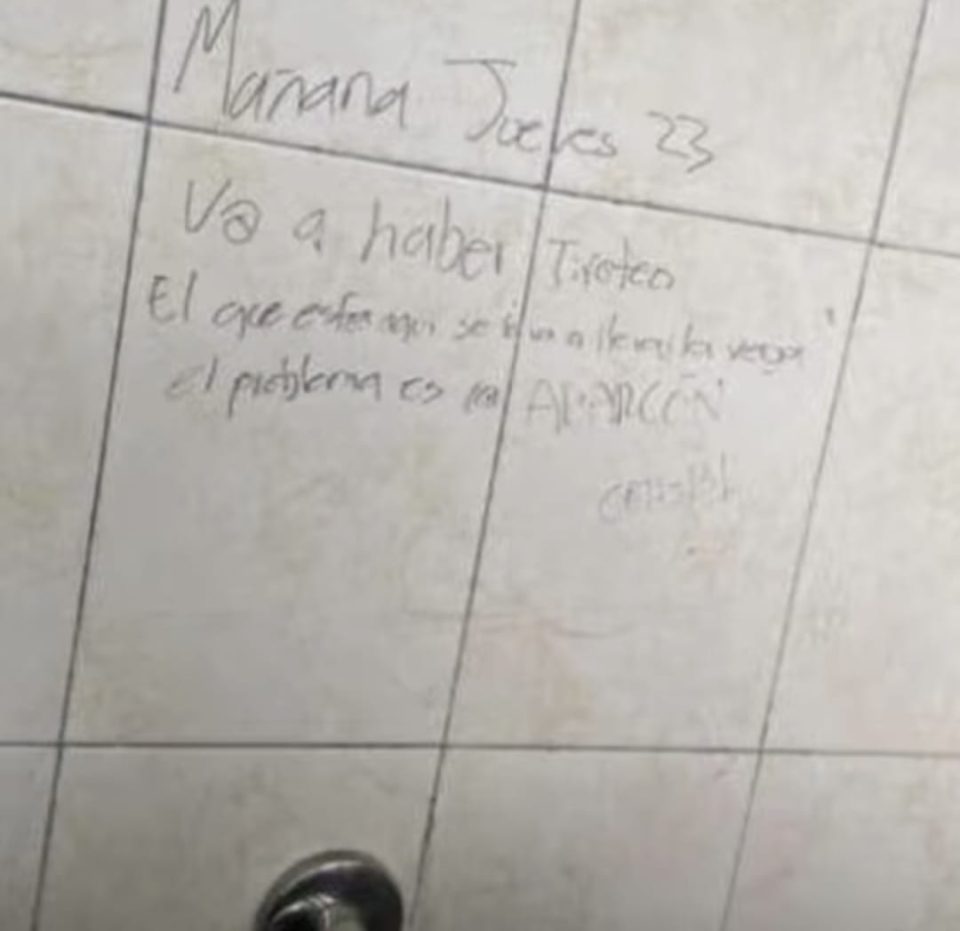 Mañana Jueves 23
Va a haber Tiroteo
El que este aqui se va a llevar la verga
el problema es con APARCON